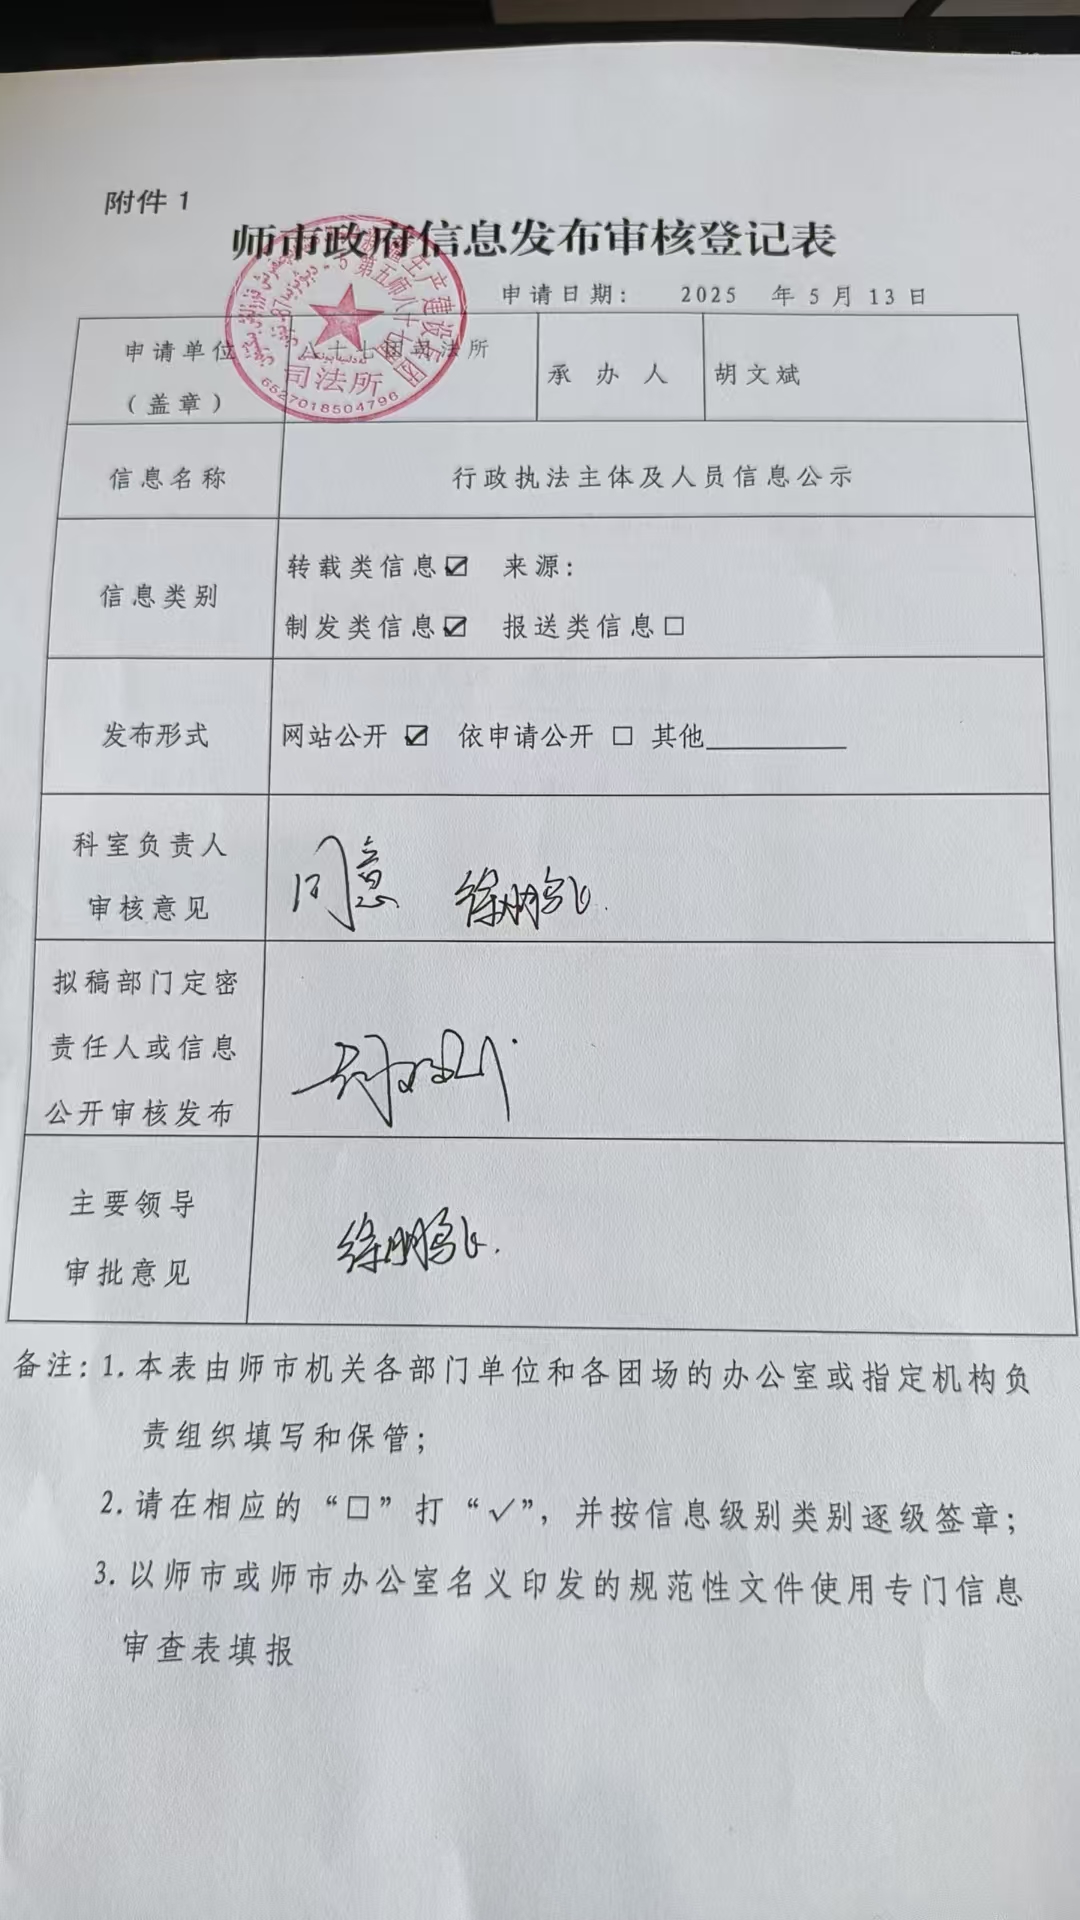 附件 1
师市政府信息发布审核登记表
申请日期： 2025 年 5 月 13 日
申请单位
（盖章）
八十七团司法所
承 办 人
胡文斌
新疆生产建设兵团
第五师八十七团
司法所
6527018504796
信息名称
行政执法主体及人员信息公示
信息类别
转载类信息☑ 来源：
制发类信息☑ 报送类信息□
发布形式
网站公开 ☑ 依申请公开 □ 其他________
科室负责人
审核意见
同意 徐鹏飞
拟稿部门定密
责任人或信息
公开审核发布
胡文斌
主要领导
审批意见
徐鹏飞
备注：1.本表由师市机关各部门单位和各团场的办公室或指定机构负
责组织填写和保管；
2.请在相应的“□”打“✓”，并按信息级别类别逐级签章；
3.以师市或师市办公室名义印发的规范性文件使用专门信息
审查表填报